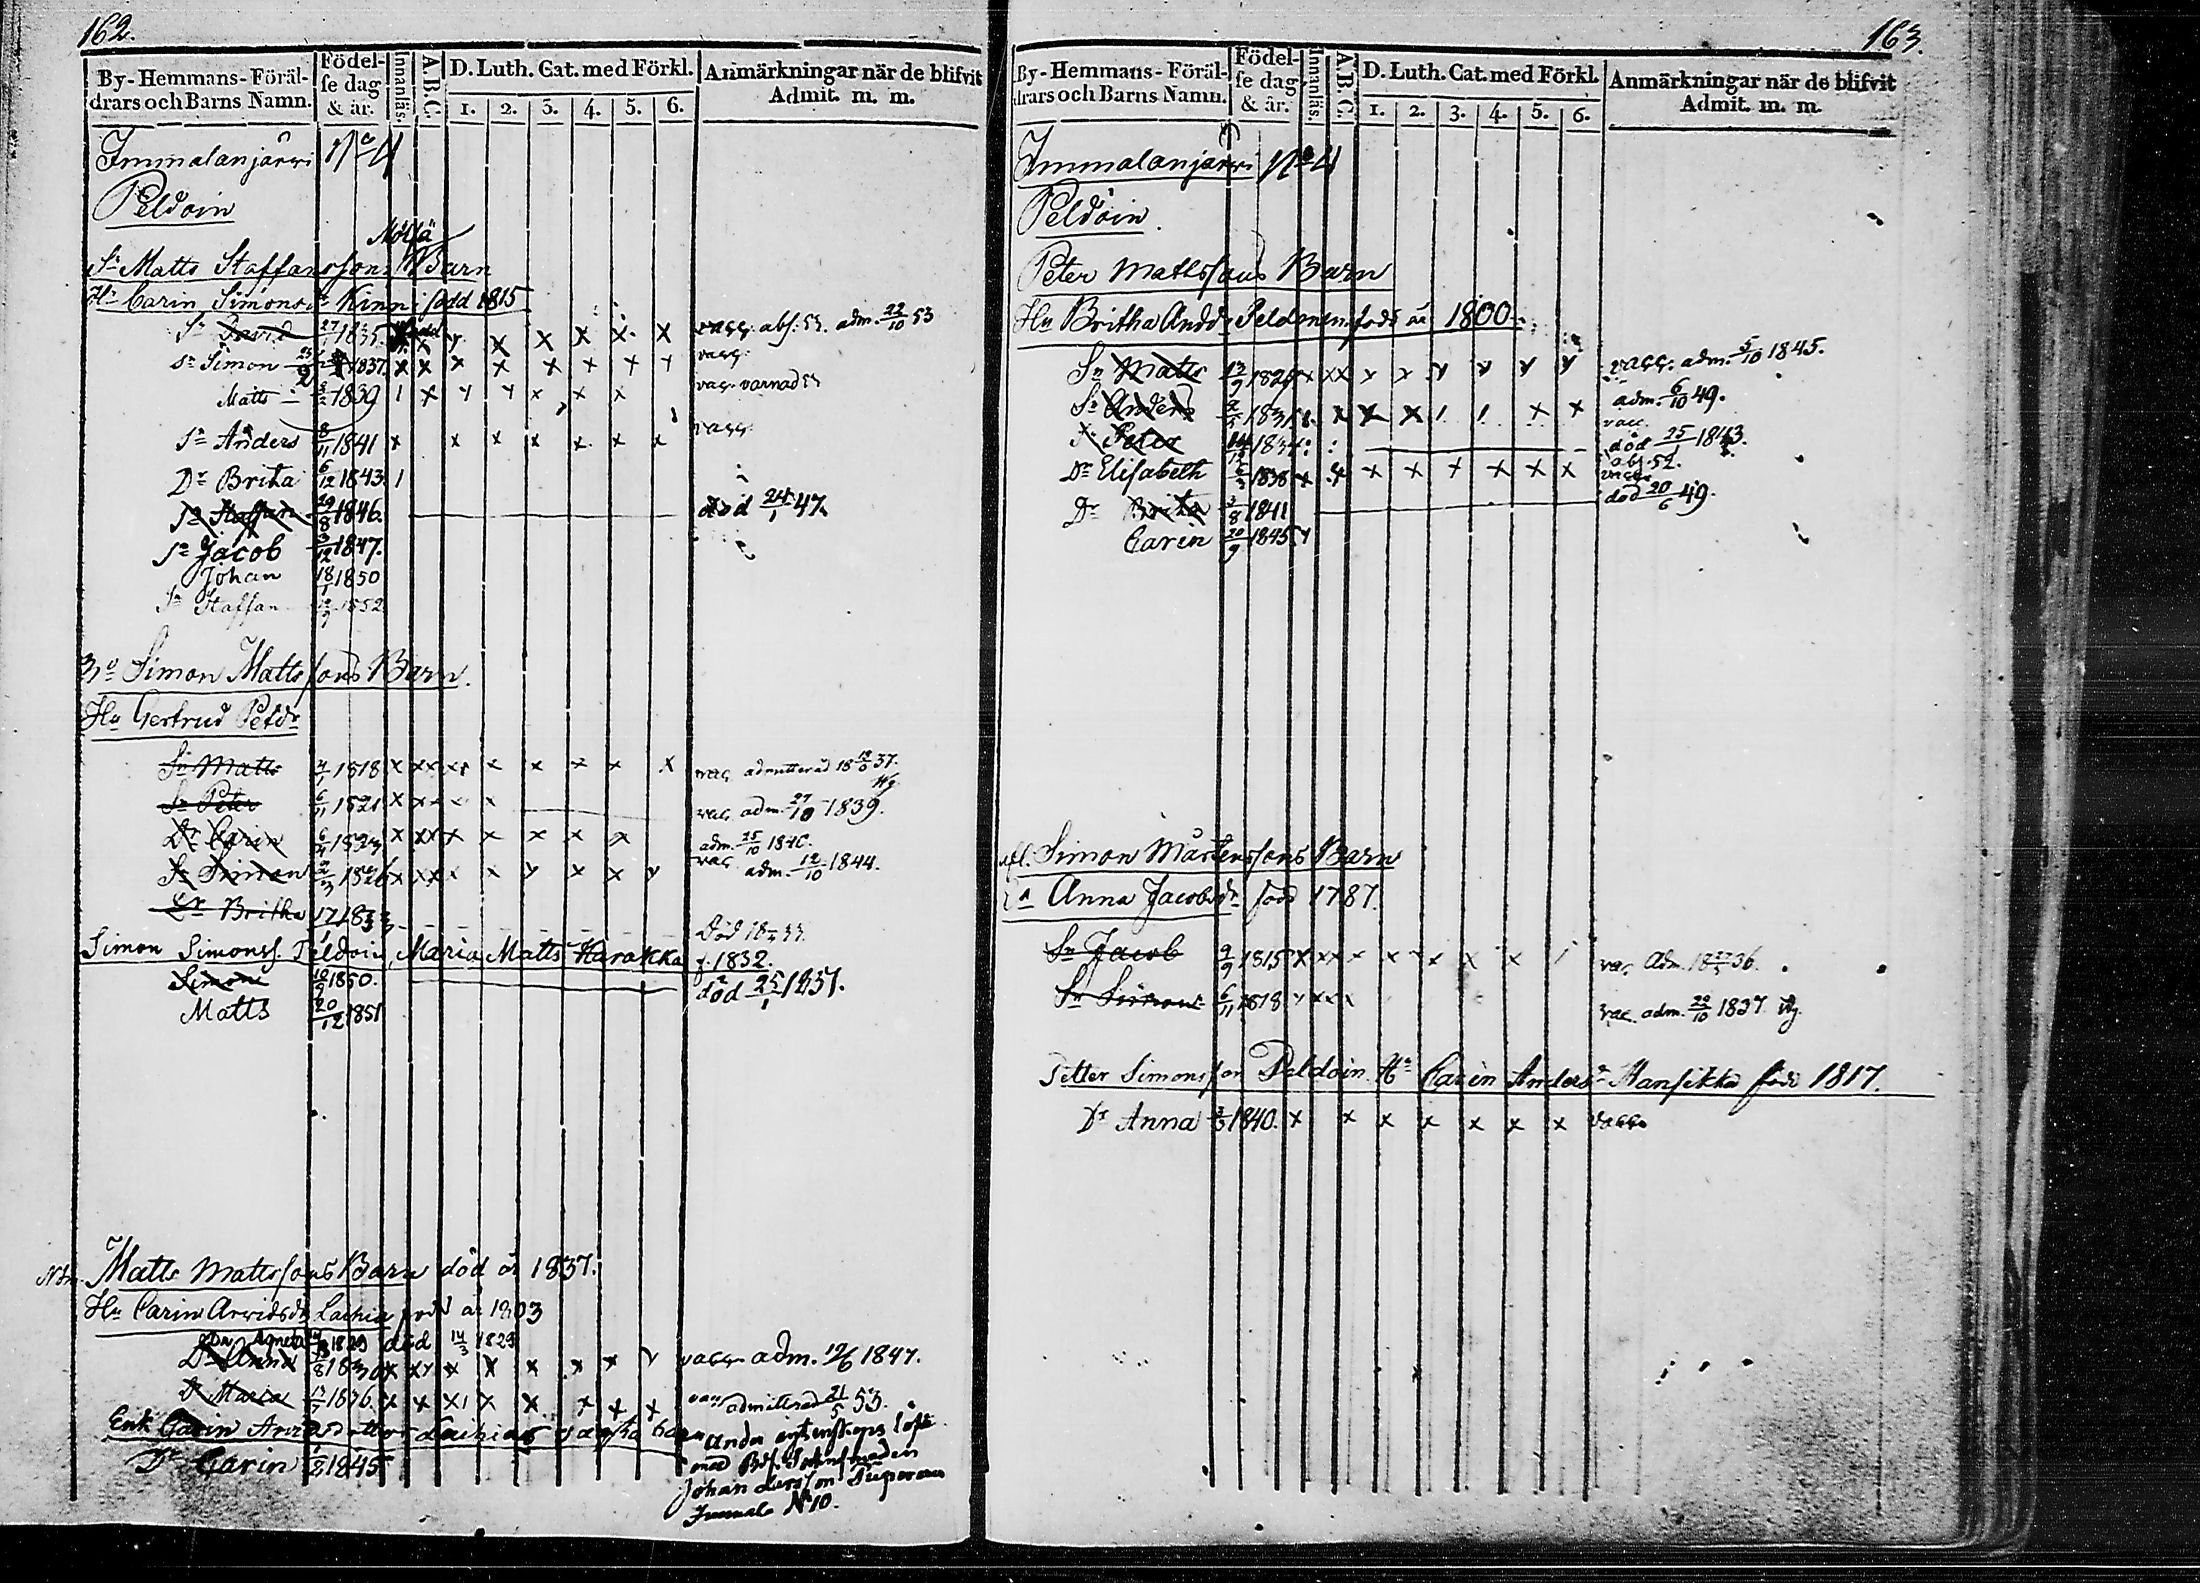 162.
By-Hemmans-Föräl-drars och Barns Namn. Födel-se dag & år. Innanläs. A.B.C. D. Luth. Cat. med Förkl. Anmärkningar när de blifvit Admit. m. m.
1. 2. 3. 4. 5. 6.
Immalanjärvi No 4
Peldoin
Mölsä
Sn Matts Staffanssons Barn
Hu Carin Simonsdr Kinni född 1815
Sn David 27/1 1835. x x x x x x vacc: abs: 53. adm. 22/10 53
Sn Simon 1837. x x x x x x x x vacc:
Matts 1839 1 x x x x x x vac. varnad 53
Sn Anders 8/11 1841 x x x x x x x vacc:
Dr Brita 6/12 1843. 1
Sn Staffan 29/8 1846. död 24/1 47.
Sn Jacob 3/12 1847.
Johan 18/1 1850
Sn Staffan 1852
Simon Mattssons Barn.
Hu Gertrud Petdr
Sn Matts 1818 x xx xx x x x x x vac admitterad 37.
Sn Peter 6/11 1821 x x x x x vac. adm. 27/10 1839.
Dr Carin 1823 x xx x x x x x adm. 25/10 1840.
Sn Simon 1826 x xx x x x x x x vac adm. 12/10 1844.
Dr Britha 17/1 1833 Död 18 33.
Simon Simonss. Peldoin, Maria Matts Harakka f. 1832.
Simon 1850. död 25/1 1851.
Matts 20/12 1851
Matts Mattssons Barn död år 1837.
Hu Carin Arvidsdr Lachia född år 1803
Dr Agneta 1829 död 14/3 1829
Dr Anna 1830 x xx x x x x x x vacc. adm. 1847.
Dr Maria 1836. x x x 1 x x x x x vacc admitterad 21/5 53.
Enk Carin Arvidsdotter Lachias oägta barn
Dr Carin 1845
Under ägtenskaps löfte
med
Johan Larsson
Immala No 10.
163.
By-Hemmans-Föräl-drars och Barns Namn. Födel-se dag & år. Innanläs. A.B.C. D. Luth. Cat. med Förkl. Anmärkningar när de blifvit Admit. m. m.
1. 2. 3. 4. 5. 6.
Immalanjärvi No 4
Peldoin.
Peter Mattssons Barn
Hu Britha Andr Peldinen född år 1800.
Sn Matts 13/9 1829 x xx x x x x x x vacc: adm. 5/10 1845.
Sn Anders 1831. x x x 1 1 x x adm. 6/10 49.
vacc.
Sn Peter 1834 död 25/1 1843.
Dr Elisabeth 1838 x x x x x x x x abs. 52.
vacc.
Dr Brita 3/8 1841 död 20/6 49.
Carin 20/9 1845. x
afl. Simon Mårtenssons Barn
Ea Anna Jacobsdr född 1787.
Sn Jacob 9/9 1815 x xx x x x x x 1 vac. Adm. 18 36.
Sn Simon 6/11 1818 x xxx vac. adm. 29/10 1837.
Petter Simonsson Peldoin Hu Carin Andersdr Mansikka född 1817.
Dr Anna 1840. x x x x x x x vacc.